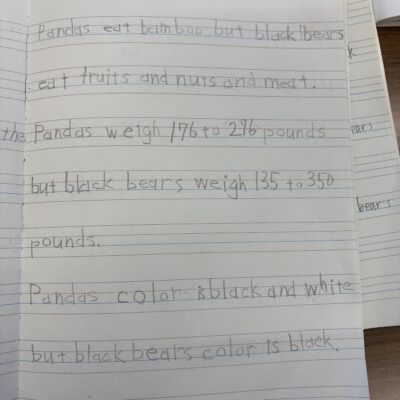 Pandas eat bamboo but black bears
eat fruits and nuts and meat.
the Pandas weigh 176 to 276 pounds
but black bears weigh 135 to 350
pounds.
Pandas color is black and white
but black bears color is black.
ears
bears